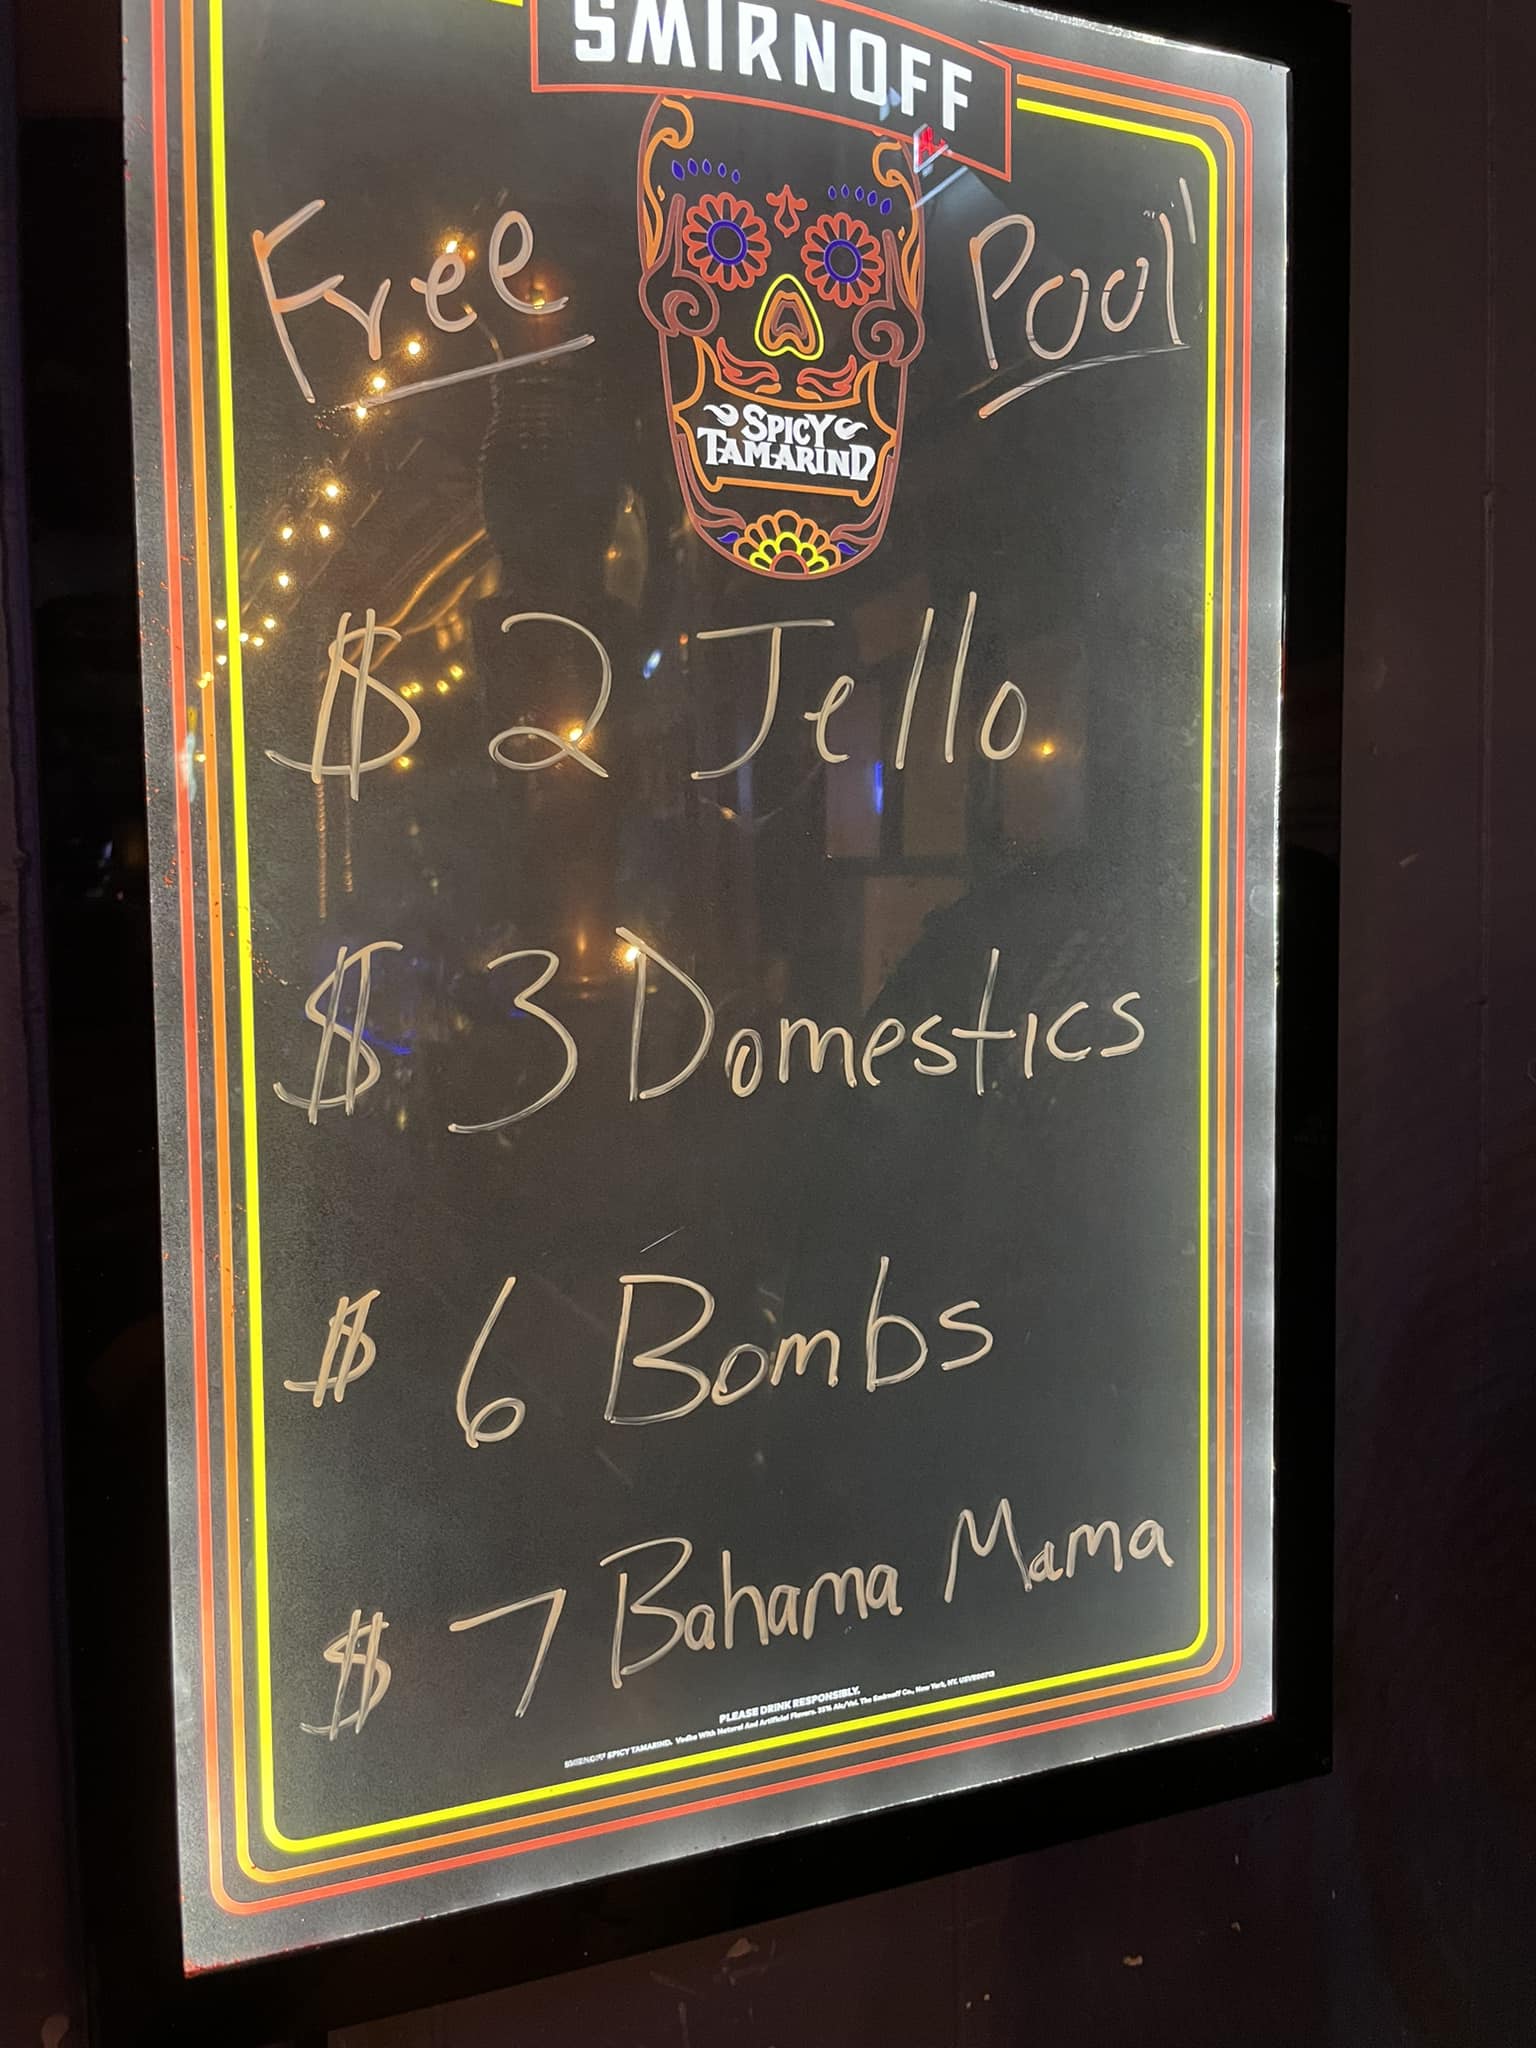 SMIRNOFF
Free Pool
SPICY
TAMARIND
$ 2 Jello
$ 3 Domestics
$ 6 Bombs
$ 7 Bahama Mama
PLEASE DRINK RESPONSIBLY.
SMIRNOFF SPICY TAMARIND. Vodka With Natural And Artificial Flavors. 35% Alc/Vol. The Smirnoff Co., New York, NY.